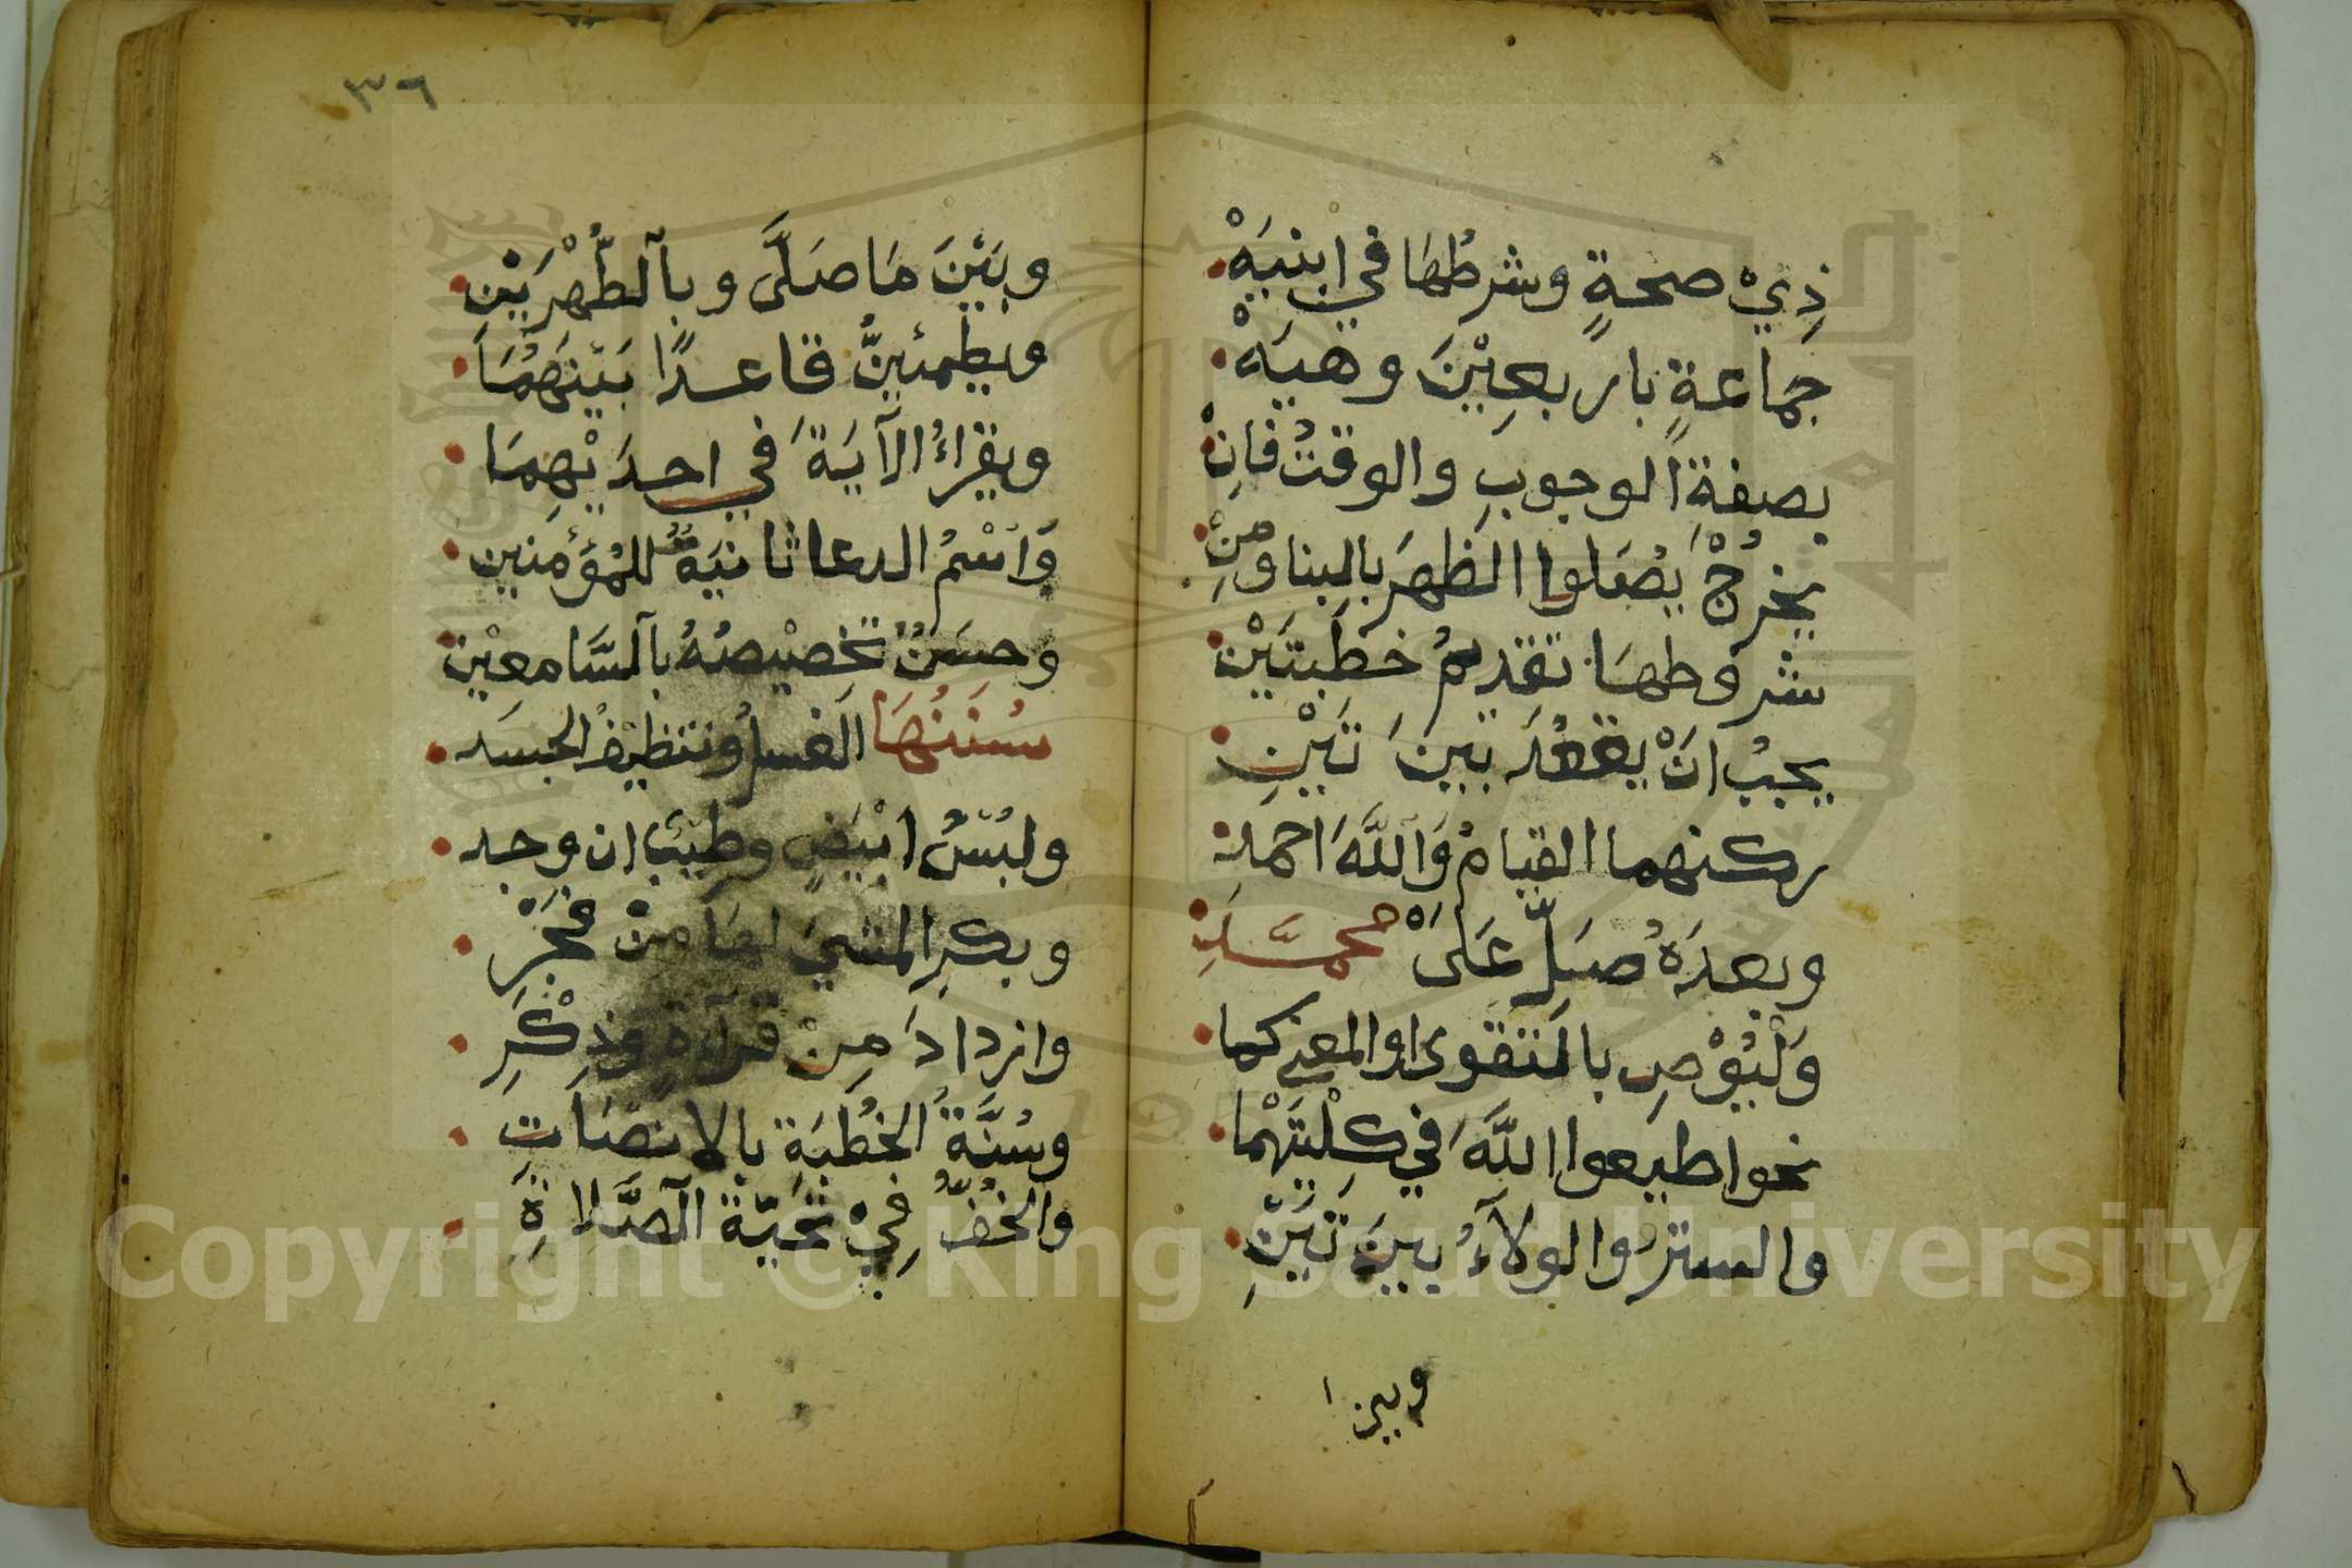 ذِيْ صحةٍ وشرطُهَا في ابنيَهْ
جماعةٍ باربعِيْنَ وهيَهْ
بصفةِ الوجوبِ والوقتُ فانِْ
يخرجْ يُصَلوا الظهرَ بالبنا ومِنْ
شروطهَا تقديمُ خطبتَيْن
يجبُ انْ يقعُدَ بينَ تَيْنِ
ركنهما القيامُ وَاللَّهَ احمدِ
وبعدَهُ صَلِّ عَلَى محمَّدِ
وَلْيُوْصِ بالتقوى او المعنى كما
نحو اطيعوا اللَّهَ في كِلْتَيْهما
والستر والولآءُ بينَ تَيْنِ
وبين
٣٦
وبَيْنَ مَا صَلَّى وبالطُّهْرَيْنِ
ويطمئنُّ قاعدًا بَيْنَهُمَا
ويقراءُ الآيَةَ في احدَيْهِمَا
وَاسْمُ الدعا ثانيَةً للمُؤْمنين
وحسَنٌ تخصيْصهُ بالسَّامعِيْن
سُنَنُهَا الغسلُ وتنظيفُ الجسَد
ولبْسُ ابْيَضٍ وطيْبٌ ان وجد
وبكرِ المشيَ لهَا منْ فَجْرِ
وازدادَ مِنْ قرآءةٍ وذِكْرِ
وسُنَّةُ الخُطْبَةِ بالانصَاتِ
والخُفُّ فِيْ تحيّة الصَّلاةِ
Copyright © King Saud University